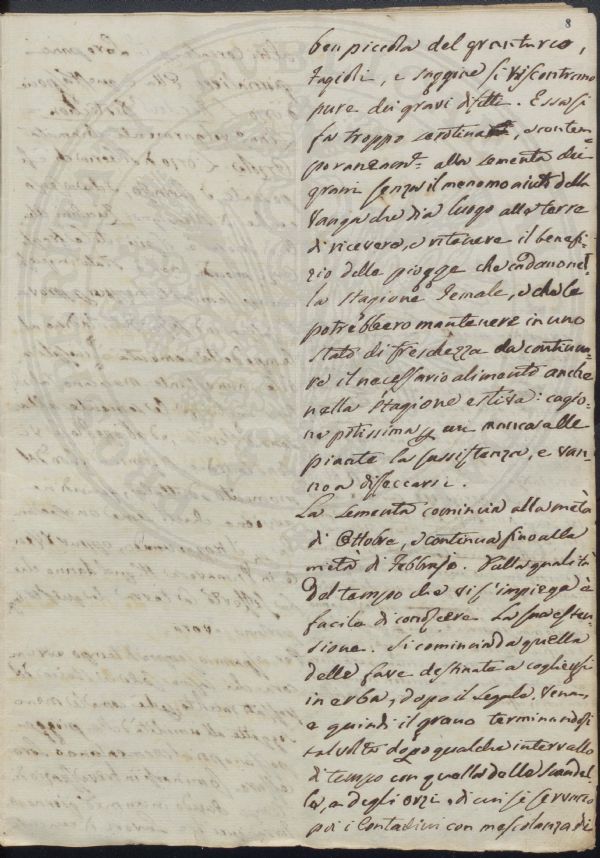 8
ben piccola del granturco,
fagioli, e saggine si riscontrano
pure dei gravi difetti. Essa si
fa troppo serotina, e contem-
poraneamt.e alla sementa dei
grani senza il menomo aiuto della
vanga che dia luogo alle terre
di ricevere, e ritenere il benefi-
zio delle piogge che cadono nel-
la Stagione Iemale, e che le
potrebbero mantenere in uno
stato di freschezza da continua-
re il necessario alimento anche
nella Stagione estiva: cagio-
ne potissima p. cui manca alle
piante la sussistenza, e van-
no a disseccarsi.
La Sementa comincia alla metà
di Ottobre, e continua fino alla
metà di Febbrajo. Dalla qualità
del tempo che vi s'impiega è
facile di conoscere la sua esten-
sione. Si comincia da quella
delle fave destinate a cogliersi
in erba, dopo il segale, vena,
e quindi il grano terminandosi
tal volta dopo qualche intervallo
di tempo con quella delle Scandel-
le, e degli orzi, di cui si servono
poi i Contadini con mescolanza di